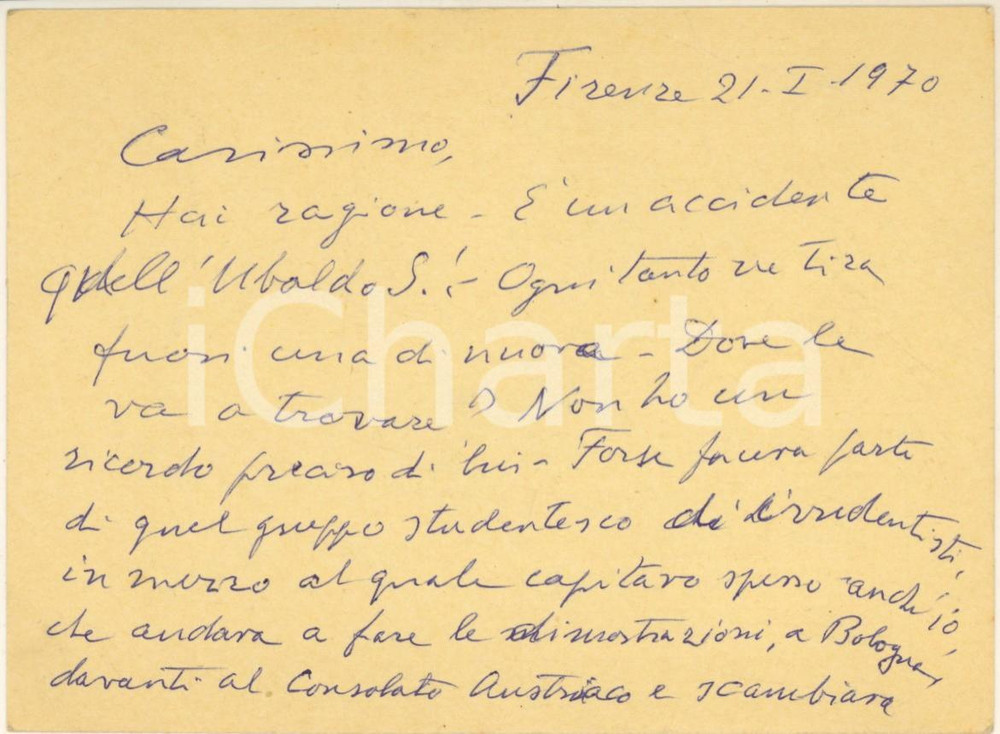 Firenze 21-I-1970
Carissimo,
Hai ragione - È un accidente
quell'Ubaldo S.! - Ogni tanto ne tira
fuori una di nuova - Dove le
va a trovare? Non ho un
ricordo preciso di lui - Forse faceva parte
di quel gruppo studentesco di irredentisti,
in mezzo al quale capitavo spesso anch'io,
che andava a fare le dimostrazioni, a Bologna,
davanti al Consolato Austriaco e scambiava
iCharta